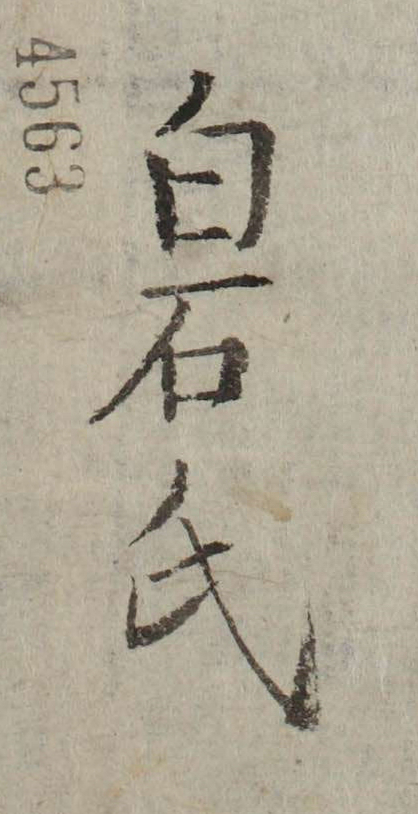 白石氏
4563